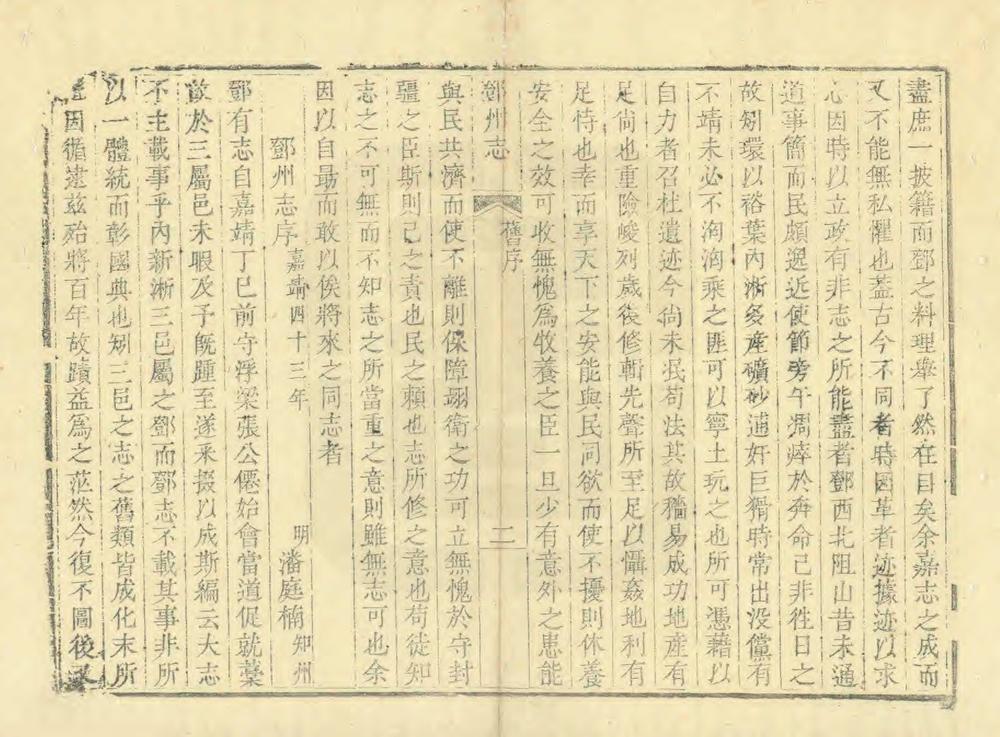 盡庶一披籍而鄧之料理舉了然在目矣余嘉志之成而
又不能無私懼也蓋古今不同者時因革者迹據迹以求
心因時以立政有非志之所能盡者鄧西北阻山昔未通
道事簡而民頗逸近使節旁午凋瘁於奔命己非徃日之
故矧環以裕葉內淅多產礦砂逋奸巨猾時常出没儻有
不靖未必不洶洶乘之匪可以寧土玩之也所可憑藉以
自力者召杜遺迹今尚未泯苟法其故穡易成功地產有
足尚也重險峻列歲後修輯先聲所至足以懾姦地利有
足恃也幸而享天下之安能與民同欲而使不擾則休養
安全之效可收無愧爲牧養之臣一旦少有意外之患能
鄧州志
舊序
二
與民共濟而使不離則保障翊衛之功可立無愧於守封
疆之臣斯則己之責也民之賴也志所修之意也苟徒知
志之不可無而不知志之所當重之意則雖無志可也余
因以自勗而敢以俟將來之同志者
鄧州志序 嘉靖四十三年 明潘庭楠知州
鄧有志自嘉靖丁巳前守浮梁張公僊始會當道促就藁
故於三屬邑未暇及予旣踵至遂釆掇以成斯編云大志
不主載事乎內新淅三邑屬之鄧而鄧志不載其事非所
以一體統而彰國典也矧三邑之志之舊類皆成化末所
因循逮兹殆將百年故蹟益爲之茫然今復不圖後